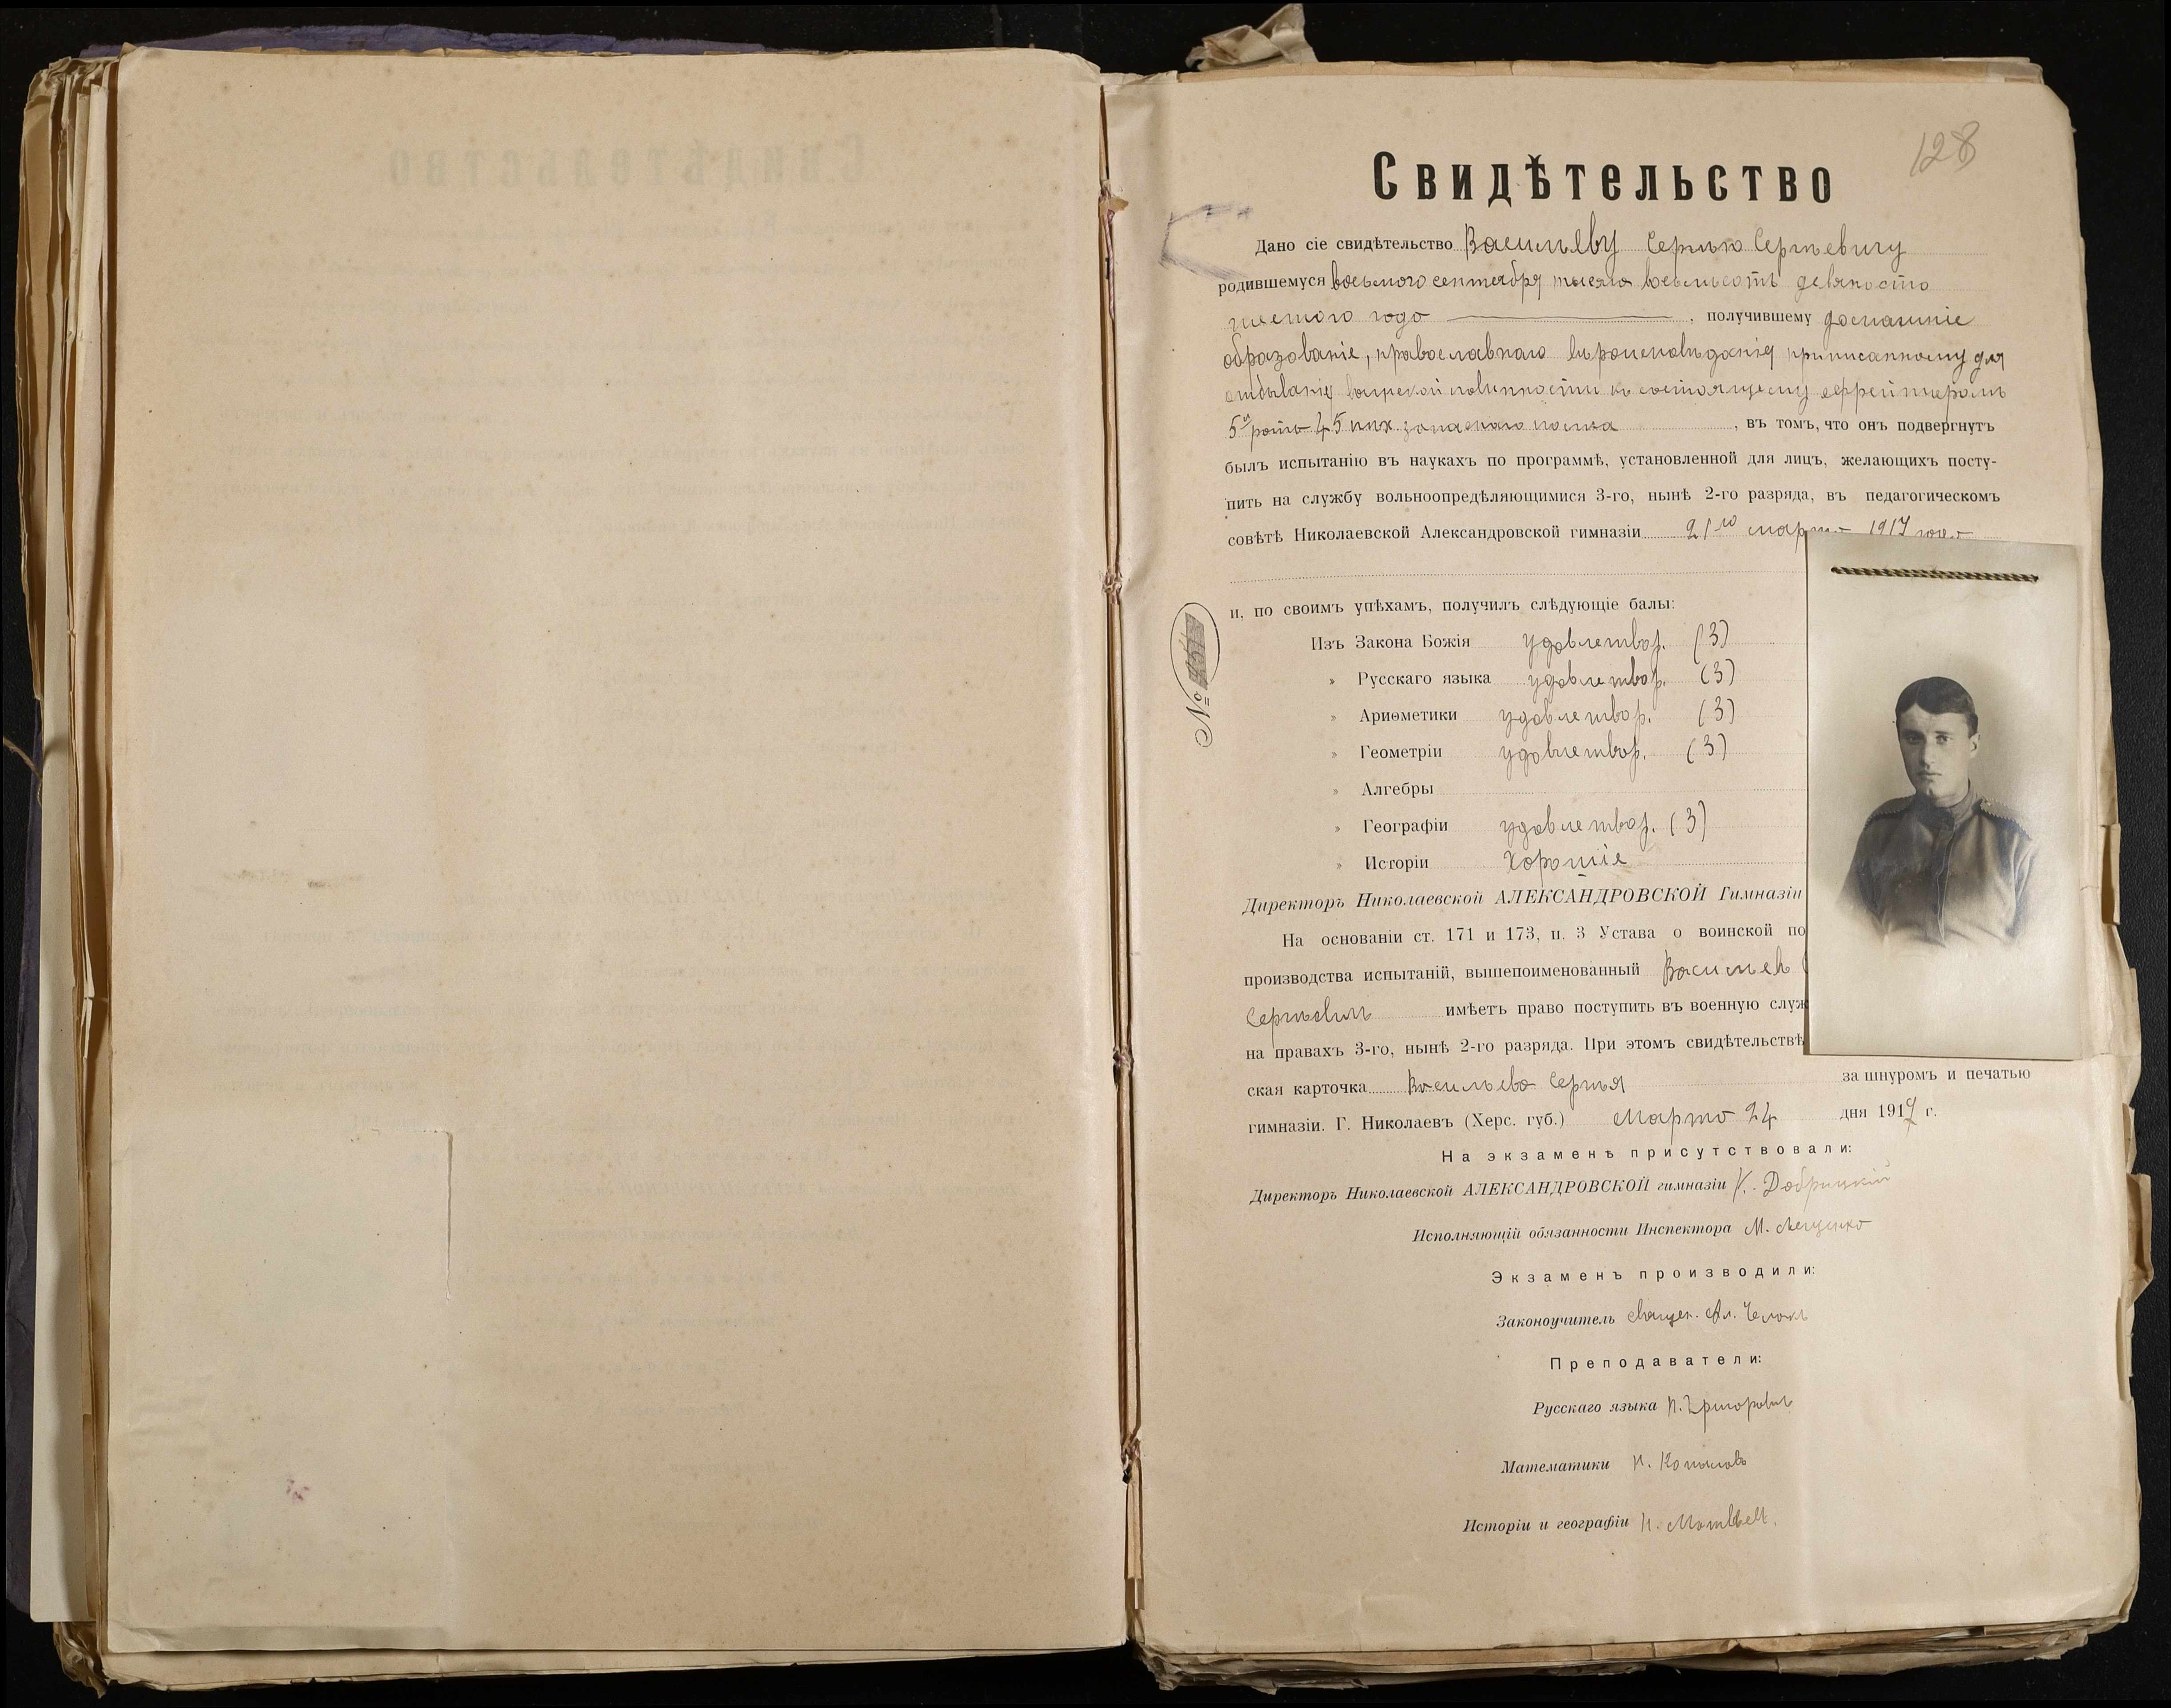 128
Свидѣтельство
Дано сіе свидѣтельство Васильеву Сергѣю Сергѣевичу
родившемуся восьмого сентября тысяча восемьсотъ девяносто
шестого года , получившему домашнее
образованіе, православнаго вѣроисповѣданія приписанному для
отбыванія воинской повинности къ состоящему ефрейторомъ
5й роты 45 пѣх запаснаго полка , въ томъ, что онъ подвергнутъ
былъ испытанію въ наукахъ по программѣ, установленной для лицъ, желающихъ посту-
пить на службу вольноопредѣляющимися 3-го, нынѣ 2-го разряда, въ педагогическомъ
совѣтѣ Николаевской Александровской гимназіи 21го марта 1917 года
и, по своимъ успѣхамъ, получилъ слѣдующіе балы:
№
Изъ Закона Божія удовлетвор. (3)
» Русскаго языка удовлетвор. (3)
» Ариѳметики удовлетвор. (3)
» Геометріи удовлетвор. (3)
» Алгебры
» Географіи удовлетвор. (3)
» Исторіи хорошіе
Директоръ Николаевской АЛЕКСАНДРОВСКОЙ Гимназіи
На основаніи ст. 171 и 173, п. 3 Устава о воинской по
производства испытаній, вышепоименованный Васильевъ
Сергѣевич имѣетъ право поступить въ военную служ
на правахъ 3-го, нынѣ 2-го разряда. При этомъ свидѣтельствѣ
ская карточка Васильева Сергѣя за шнуромъ и печатью
гимназіи. Г. Николаевъ (Херс. губ.) Марта 24 дня 1917 г.
На экзаменѣ присутствовали:
Директоръ Николаевской АЛЕКСАНДРОВСКОЙ гимназіи К. Добрицкій
Исполняющій обязанности Инспектора М. Лещенко
Экзаменъ производили:
Законоучитель священ. Ал.
Преподаватели:
Русскаго языка П. Григоровичъ
Математики И. Копыловъ
Исторіи и географіи И. Матвѣев.